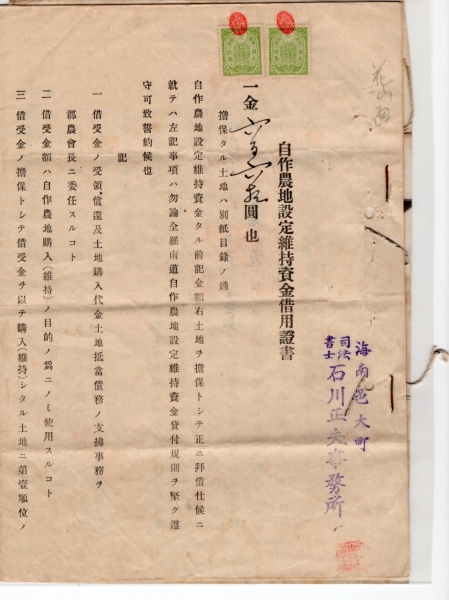 海南邑大町
司法書士 石川正夫事務所
自作農地設定維持資金借用證書
一金六百六拾圓也
擔保タル土地ハ別紙目録ノ通
自作農地設定維持資金タル前記金額右土地ヲ擔保トシテ正ニ拜借仕候ニ
就テハ左記事項ハ勿論全羅南道自作農地設定維持資金貸付規則ヲ堅ク遵
守可致誓約候也
記
一 借受金ノ受領、償還及土地購入代金土地抵當債務ノ支拂事務ヲ
郡農會長ニ委任スルコト
二 借受金額ハ自作農地購入(維持)ノ目的ノ爲ニノミ使用スルコト
三 借受金ノ擔保トシテ借受金ヲ以テ購入(維持)シタル土地ニ第壹順位ノ